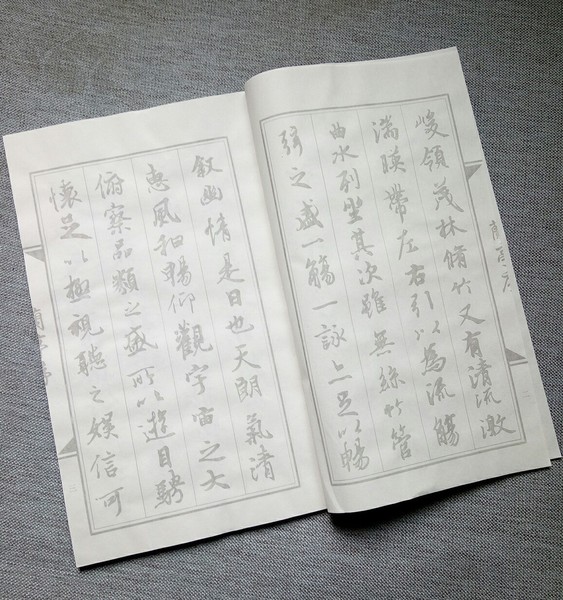 峻領茂林脩竹又有清流激
湍暎帶左右引以為流觴
曲水列坐其次雖無絲竹管
弦之盛一觴一詠亦足以暢
叙幽情是日也天朗氣清
惠風和暢仰觀宇宙之大
俯察品類之盛所以遊目騁
懷足以極視聽之娛信可